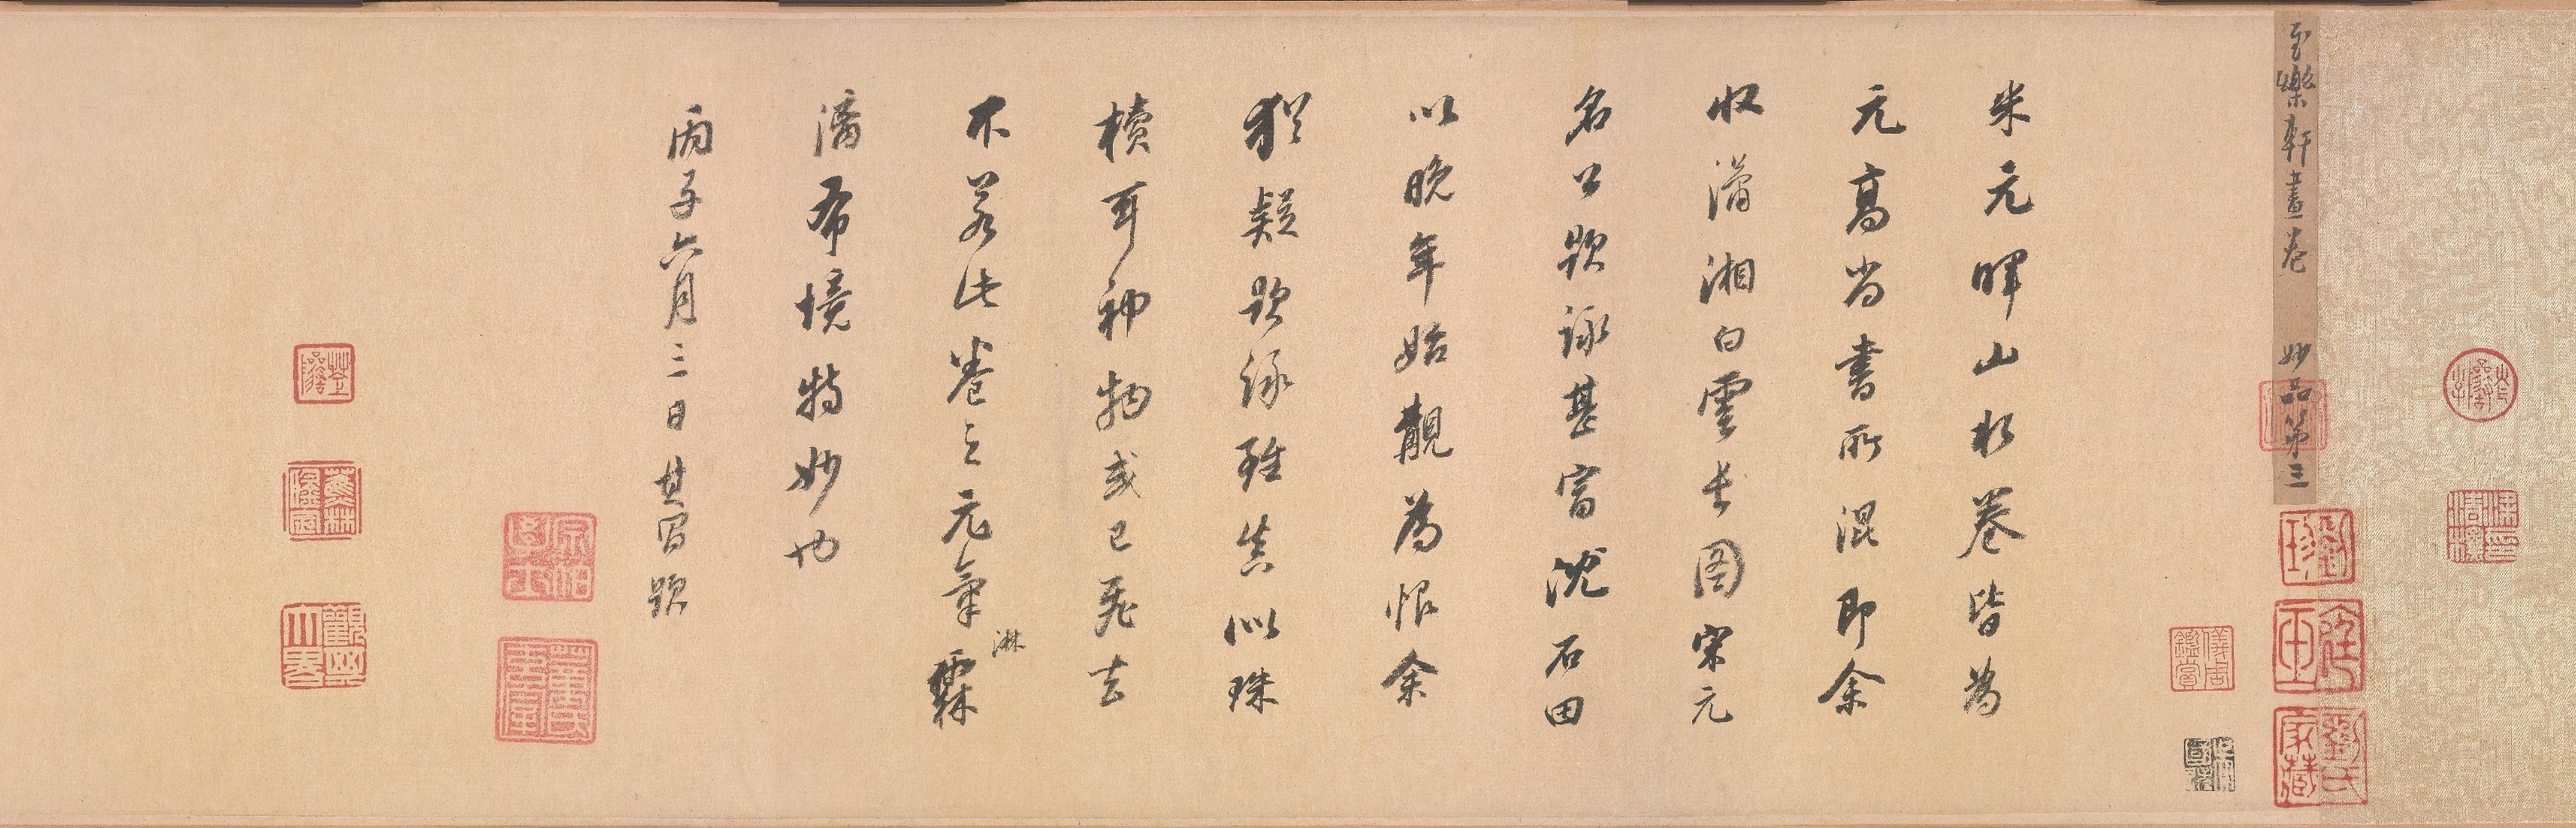 至樂軒畫卷 妙品第三
米元暉山水卷皆為
元高尚書所混即余
收瀟湘白雲長圖宋元
名公題詠甚富沈石田
以晚年始覯為恨余
猶疑題詠雖真似珠
櫝耳神物或已飛去
不若此卷之元氣霖
淋
漓布境特妙也
丙子六月二日其昌題